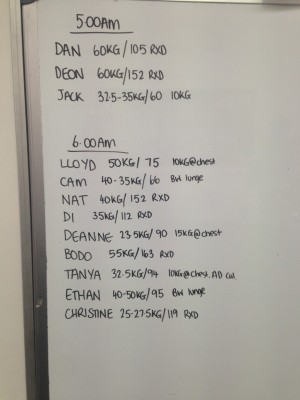 5:00AM
DAN 60KG/105 RXD
DEON 60KG/152 RXD
JACK 32.5-35KG/60 10KG
6:00AM
LLOYD 50KG/75 10KG@chest
CAM 40-35KG/66 BW lunge
NAT 40KG/152 RXD
DI 35KG/112 RXD
DEANNE 23.5KG/90 15KG@chest
BODO 55KG/163 RXD
TANYA 32.5KG/94 10KG@chest, AD Cal
ETHAN 40-50KG/95 BW lunge
CHRISTINE 25-27.5KG/119 RXD